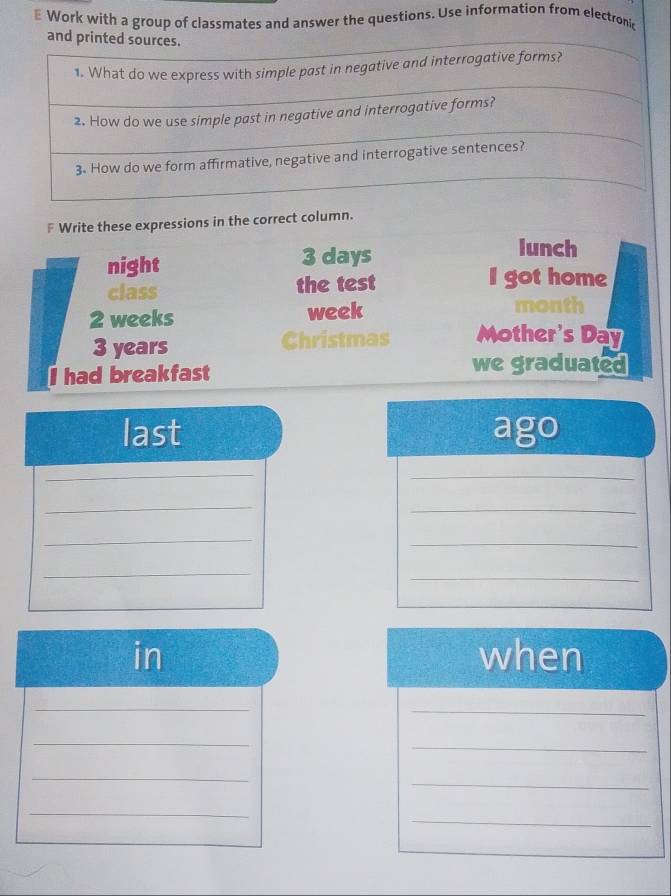 E Work with a group of classmates and answer the questions. Use information from electronic
and printed sources.
1. What do we express with simple past in negative and interrogative forms?
2. How do we use simple past in negative and interrogative forms?
3. How do we form affirmative, negative and interrogative sentences?
F Write these expressions in the correct column.
night 3 days lunch
class the test I got home
2 weeks week month
3 years Christmas Mother's Day
I had breakfast we graduated
last ago
in when